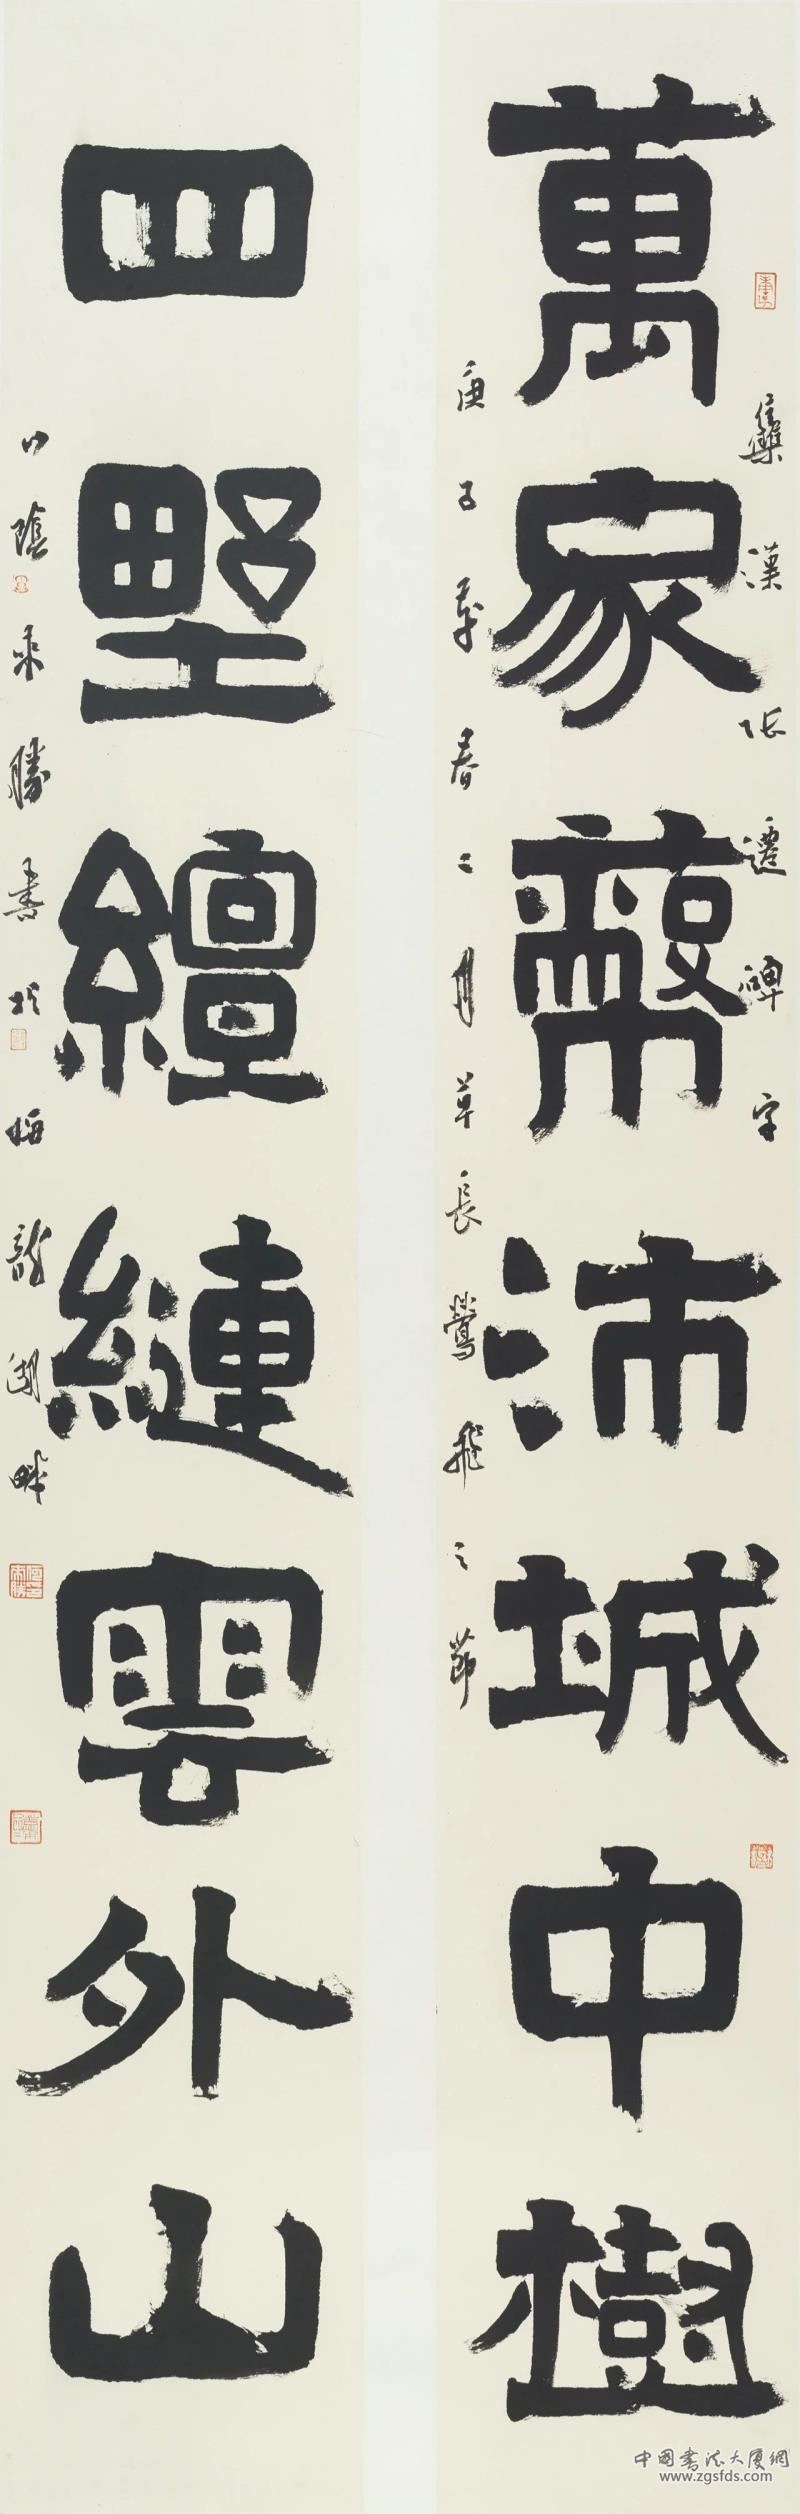 集漢張遷碑字
萬家沛城中樹
庚子春二月草長鶯飛之節
四野繵縺雲外山
山陰來勝書於梅龍湖畔
中國書法大廈網
www.zgsfds.com